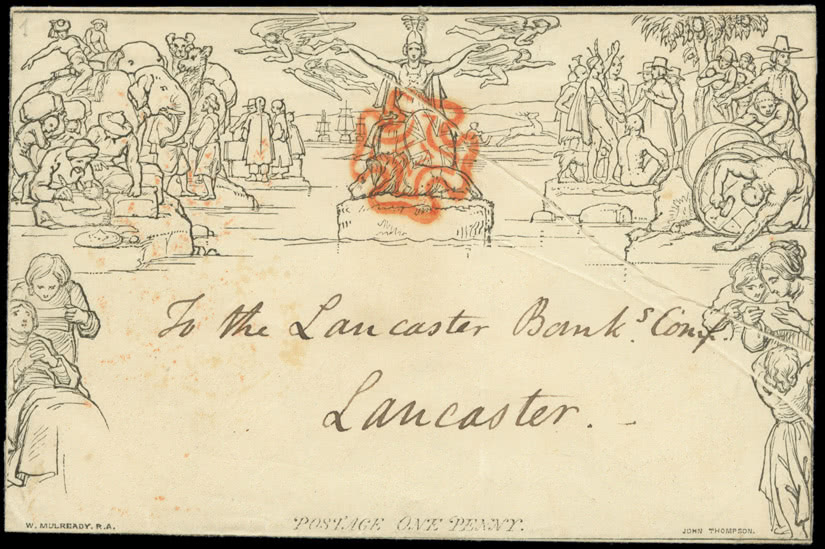 To the Lancaster Bank.s Comp.
Lancaster.
POSTAGE ONE PENNY.
W. MULREADY. R.A.
JOHN THOMPSON.